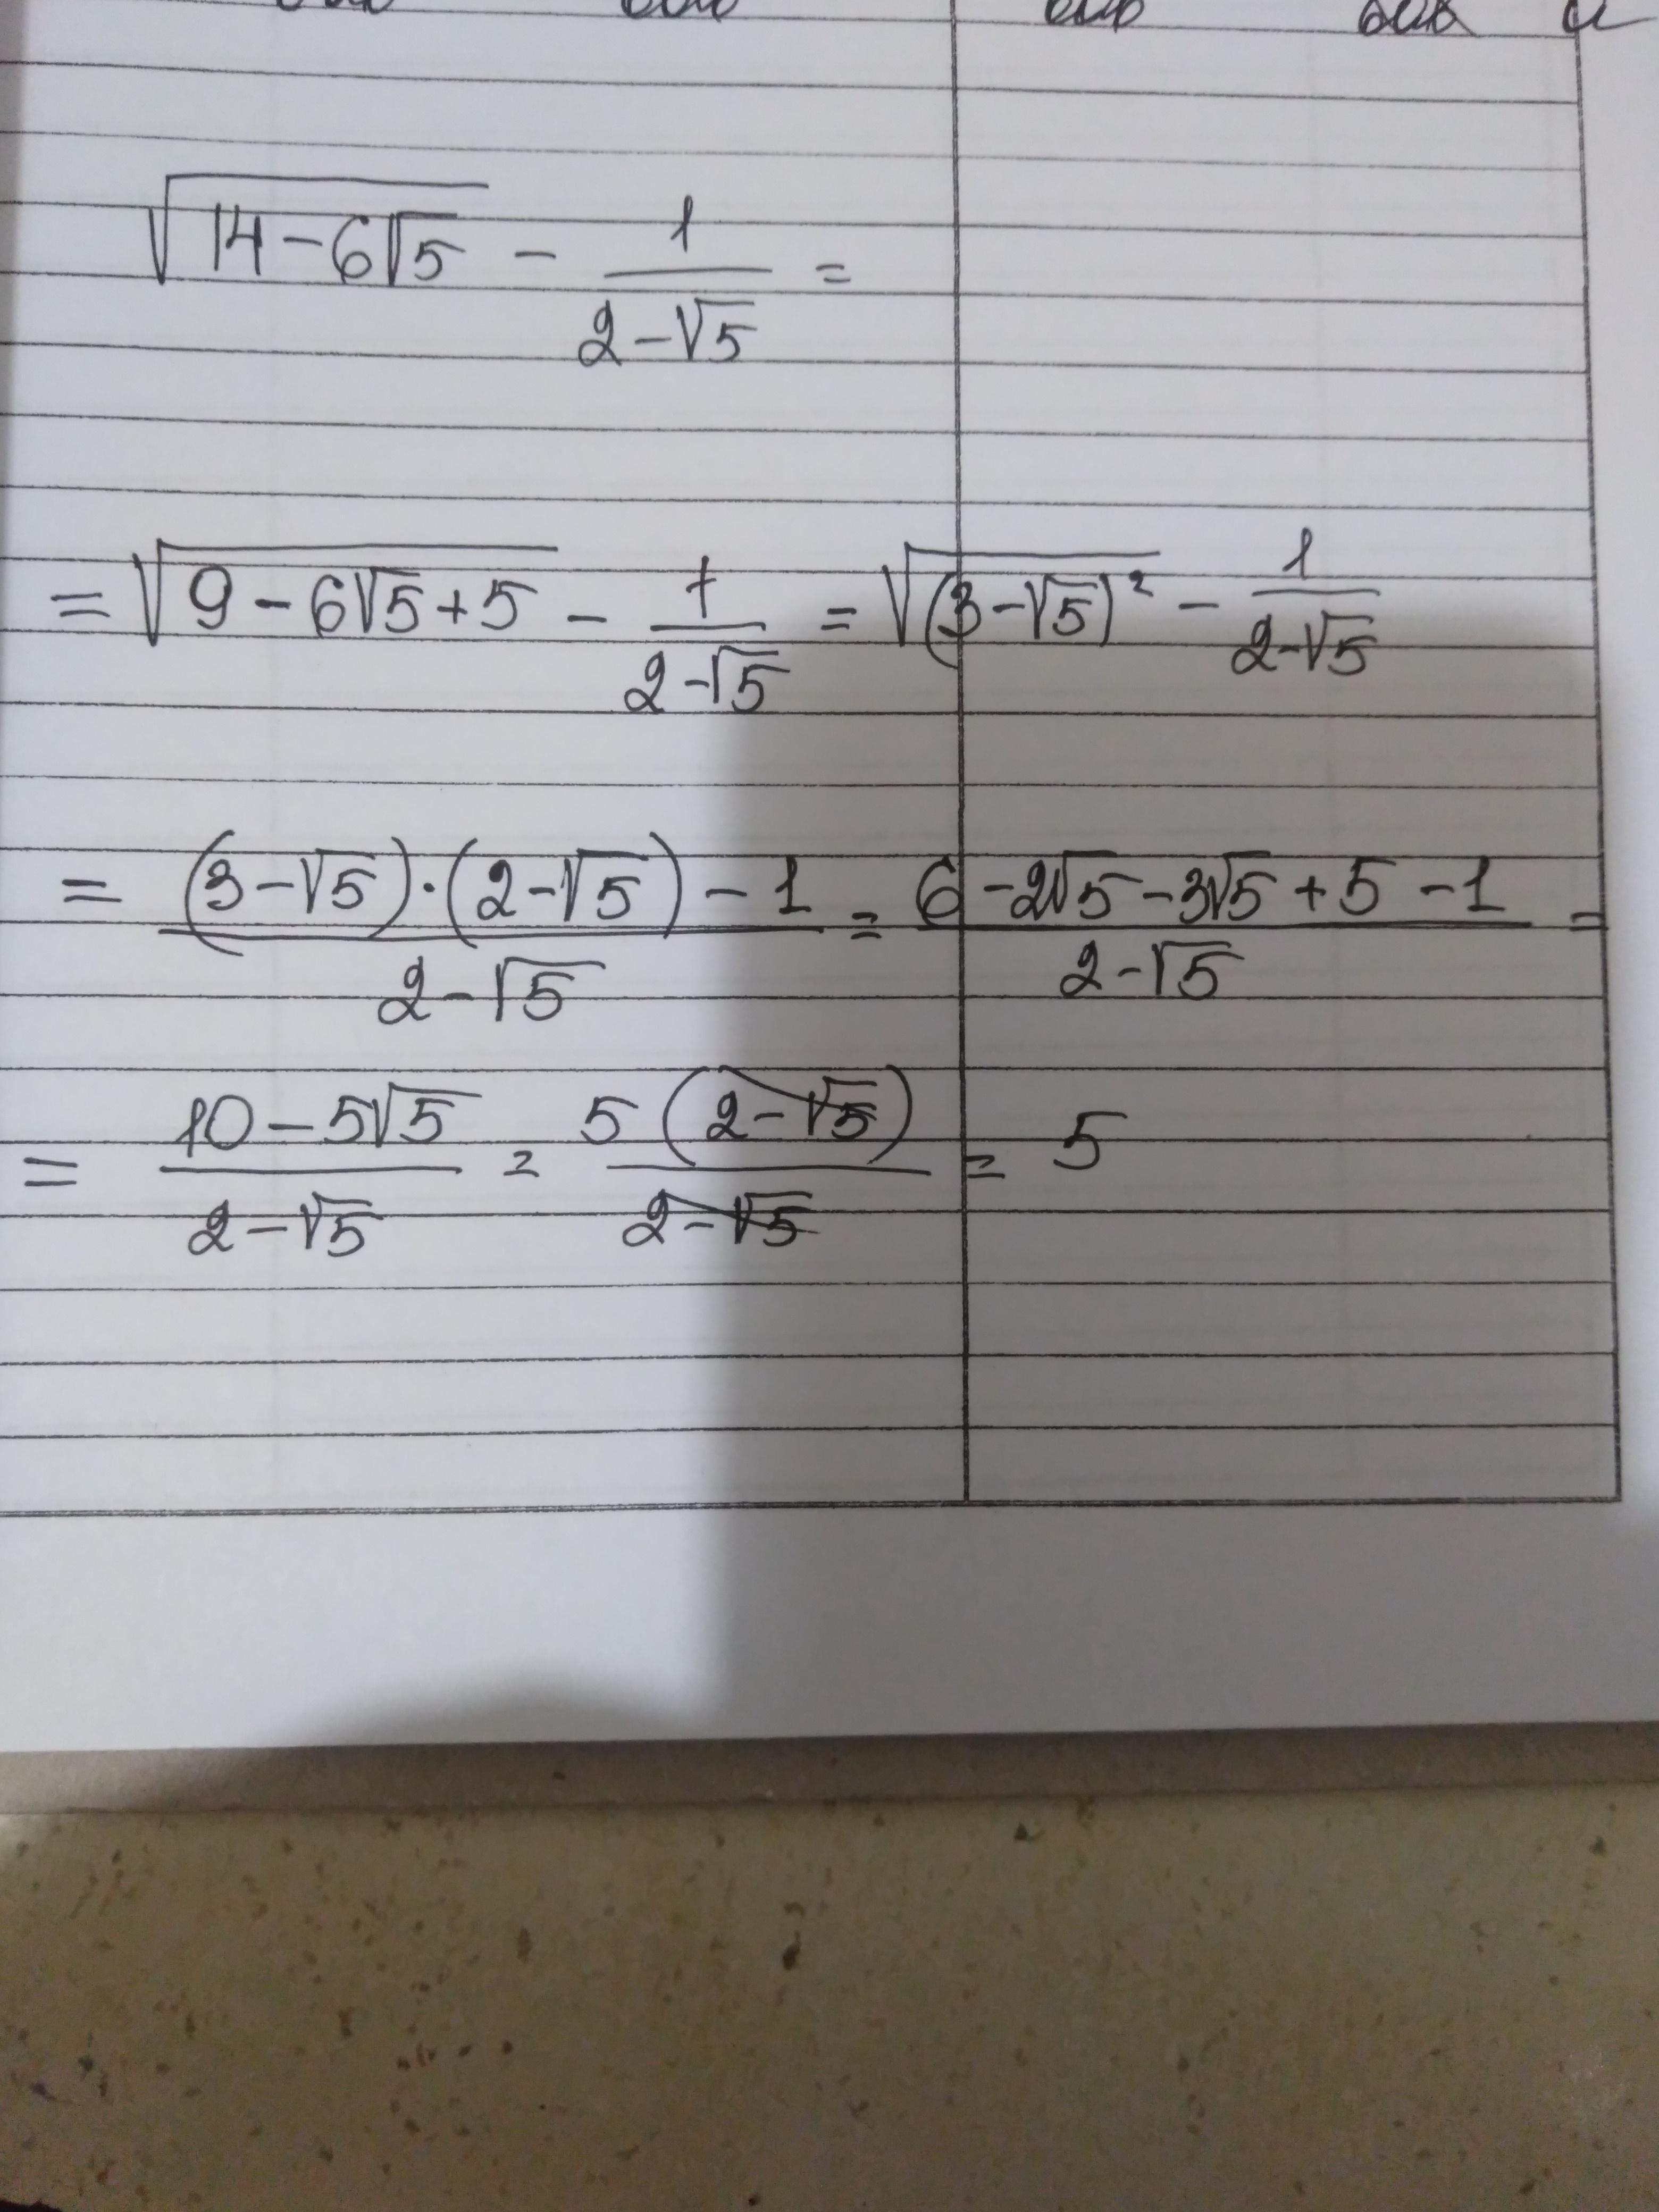 √(14-6√5) - 1/(2-√5) =
= √(9-6√5+5) - 1/(2-√5) = √((3-√5)²) - 1/(2-√5)
= ((3-√5)·(2-√5)-1)/(2-√5) = (6-2√5-3√5+5-1)/(2-√5) =
= (10-5√5)/(2-√5) = 5(2-√5)/(2-√5) = 5